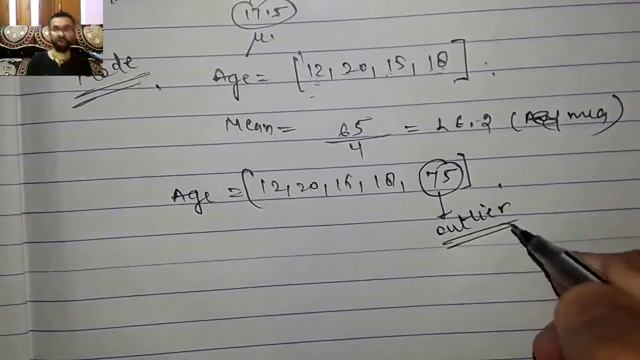 17.5
μ.
Mode
Age = [12, 20, 15, 18] .
Mean = 65/4 = 16.2 (Avg)
Age = [12, 20, 15, 18, 75] .
outlier